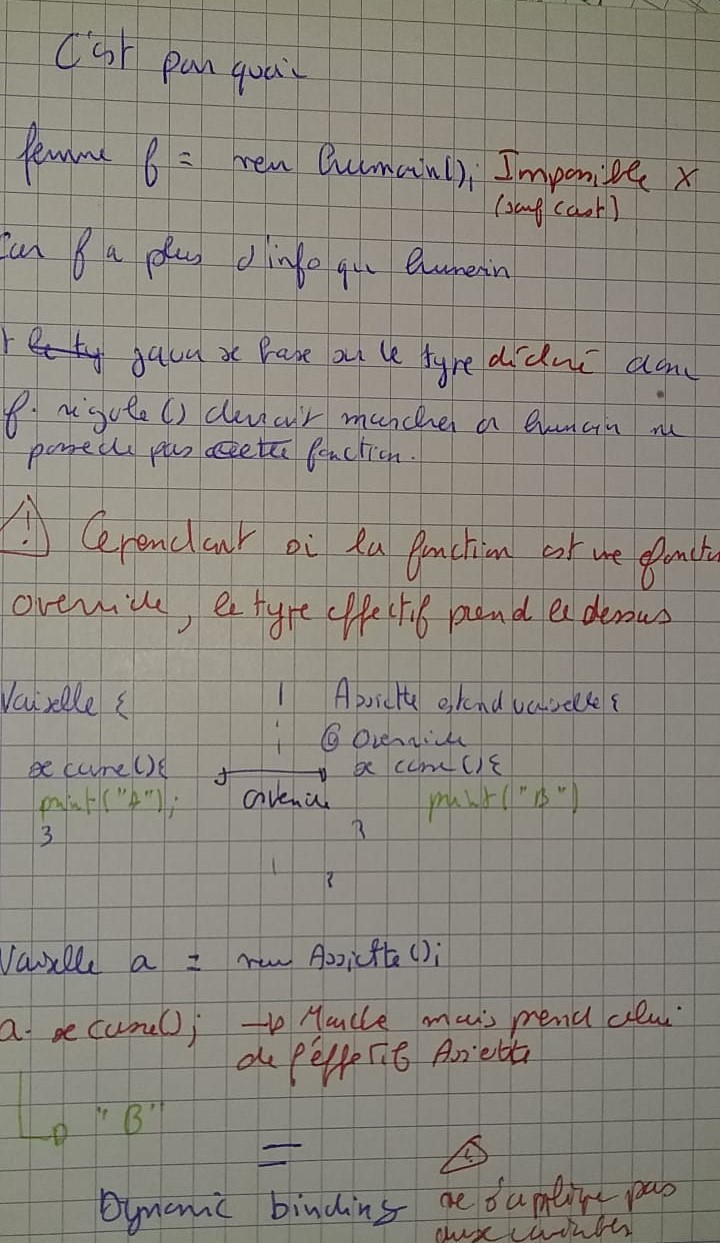 C'est pourquoi
femme f = new humain(); Impossible X
(sauf cast)
Car f a plus d'info que humain
le ty java se base sur le type déclaré donc
f. rigole () devrait marcher or humain ne
possede pas cette fonction.
! Cependant si la fonction est une fonction
override, le type effectif prend le dessus
Vaiselle { | Assiette extend vaiselle {
@ Override
se casse(){ se casse(){
print("A"); override print("B")
} }
}
Vaiselle a = new Assiette();
a. se casse(); → Marche mais prend celui
de l'éffectif Assiette
"B"
=
Dynamic binding ne s'applique pas
aux variables